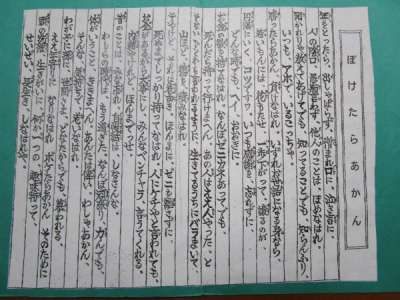 ぼけたらあかん
年をとったら、出しゃばらず、憎まれ口に、泣き言に、
人の陰口、愚痴言わず、他人のことは、ほめなはれ。
聞かれりゃ教えてあげてでも、知ってることでも、知らんふり、
いつも、アホで、いるこっちゃ。
勝ったらあかん、負けなはれ、いずれお世話になる身なら、
若いもんには、花もたせ、一歩下がって、譲るのが、
円満にいく、コツですわ、いつも感謝を、忘れずに、
どんな時でも、へイおおきに。
お金の欲を捨てなはれ、なんぼゼニカネあってでも、
死んだら持って行けまへん、あの人はええ人やった、と
そないに人から言われるように生きてるうちにバラまいて、
山ほど徳を積みなはれ。
そやけど、それは表向き、ほんまは、ゼニを離さずに、
死ぬまでしっかり持ってなはれ、人にケチやと言われても、
お金があるから大事にし、みんなベンチャラ、言うてくれる。
内緒やけれど、ほんまでっせ。
昔のことは、みな忘れ、自慢話は、しなさんな、
わしらの時代は、もう過ぎた、なんぼ頑張り、力んでも、
体がいうこと、ききまへん、あんたは偉い、わしゃあかん、
そんな、気持で、老いなはれ。
わが子に孫に、世間さま、どなたからでも、慕われる、
ええ年寄りに、なりなはれ、ボケたらあかん、そのために
頭の洗濯、生きがいに、何か一つの、趣味持って、
せいぜい、長生き、しなはれや。